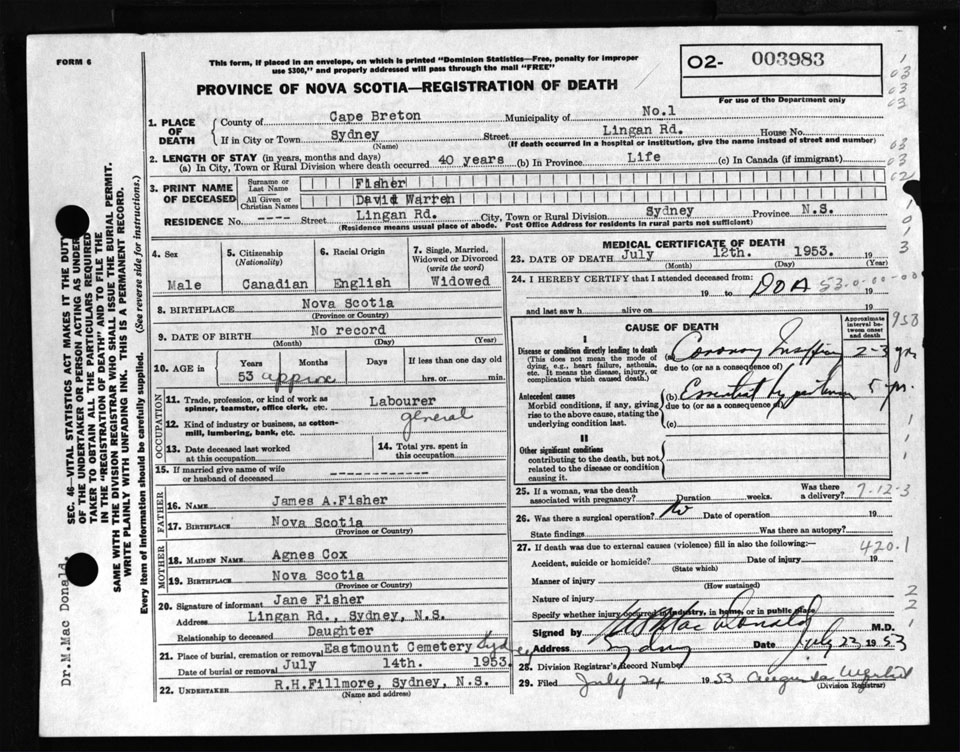 FORM 6
This form, if placed in an envelope, on which is printed "Dominion Statistics—Free, penalty for improper
use $300," and properly addressed will pass through the mail "FREE"
O2- 003983
For use of the Department only
PROVINCE OF NOVA SCOTIA—REGISTRATION OF DEATH
1. PLACE OF DEATH County of Cape Breton Municipality of No.1
If in City or Town Sydney Street Lingan Rd. House No.
(Name) (If death occurred in a hospital or institution, give the name instead of street and number)
2. LENGTH OF STAY (in years, months and days)
(a) In City, Town or Rural Division where death occurred 40 years (b) In Province Life (c) In Canada (if immigrant)
3. PRINT NAME OF DECEASED Surname or Last Name Fisher
All Given or Christian Names David Warren
RESIDENCE No. ---- Street Lingan Rd. City, Town or Rural Division Sydney Province N.S.
(Residence means usual place of abode. Post Office Address for residents in rural parts not sufficient)
4. Sex Male
5. Citizenship (Nationality) Canadian
6. Racial Origin English
7. Single, Married, Widowed or Divorced (write the word) Widowed
8. BIRTHPLACE Nova Scotia
(Province or Country)
9. DATE OF BIRTH No record
(Month) (Day) (Year)
10. AGE in Years Months Days If less than one day old
53 approx hrs. or min.
OCCUPATION
11. Trade, profession, or kind of work as spinner, teamster, office clerk, etc. Labourer
12. Kind of industry or business, as cotton-mill, lumbering, bank, etc. general
13. Date deceased last worked at this occupation
14. Total yrs. spent in this occupation
15. If married give name of wife or husband of deceased --------------
FATHER
16. NAME James A.Fisher
17. BIRTHPLACE Nova Scotia
(Province or Country)
MOTHER
18. MAIDEN NAME Agnes Cox
19. BIRTHPLACE Nova Scotia
(Province or Country)
20. Signature of informant Jane Fisher
Address Lingan Rd., Sydney, N.S.
Relationship to deceased Daughter
21. Place of burial, cremation or removal Eastmount Cemetery Sydney
Date of burial or removal July 14th. 1953.
22. UNDERTAKER R.H.Fillmore, Sydney, N.S.
(Name and address)
MEDICAL CERTIFICATE OF DEATH
23. DATE OF DEATH July 12th. 1953. 19
(Month) (Day) (Year)
24. I HEREBY CERTIFY that I attended deceased from:
19 to DOA 19
and last saw h alive on 19
CAUSE OF DEATH
Approximate interval between onset and death
I
Disease or condition directly leading to death
(This does not mean the mode of dying, e.g., heart failure, asthenia, etc. It means the disease, injury, or complication which caused death.)
(a) Coronary 2-3 yrs
due to (or as a consequence of)
Antecedent causes
Morbid conditions, if any, giving rise to the above cause, stating the underlying condition last.
(b) Essential hypertension 5 yrs.
due to (or as a consequence of)
(c)
II
Other significant conditions
contributing to the death, but not related to the disease or condition causing it.
25. If a woman, was the death associated with pregnancy? Duration weeks. Was there a delivery? 7-12-3
26. Was there a surgical operation? No Date of operation 19
State findings Was there an autopsy?
27. If death was due to external causes (violence) fill in also the following: 420.1
Accident, suicide or homicide? Date of injury 19
(State which)
Manner of injury
(How sustained)
Nature of injury
Specify whether injury occurred in industry, in home, or in public place
Signed by MacDonald M.D.
Address Sydney Date July 23 1953
28. Division Registrar's Record Number
29. Filed July 24 1953
(Division Registrar)
SEC. 46—VITAL STATISTICS ACT MAKES IT THE DUTY
OF THE UNDERTAKER OR PERSON ACTING AS UNDER-
TAKER TO OBTAIN ALL THE PARTICULARS REQUIRED
IN THE "REGISTRATION OF DEATH" AND TO FILE THE
SAME WITH THE DIVISION REGISTRAR WHO SHALL ISSUE THE BURIAL PERMIT.
WRITE PLAINLY WITH UNFADING INK. THIS IS A PERMANENT RECORD.
Every item of information should be carefully supplied. (See reverse side for instructions.)
Dr.M.Mac Donald.